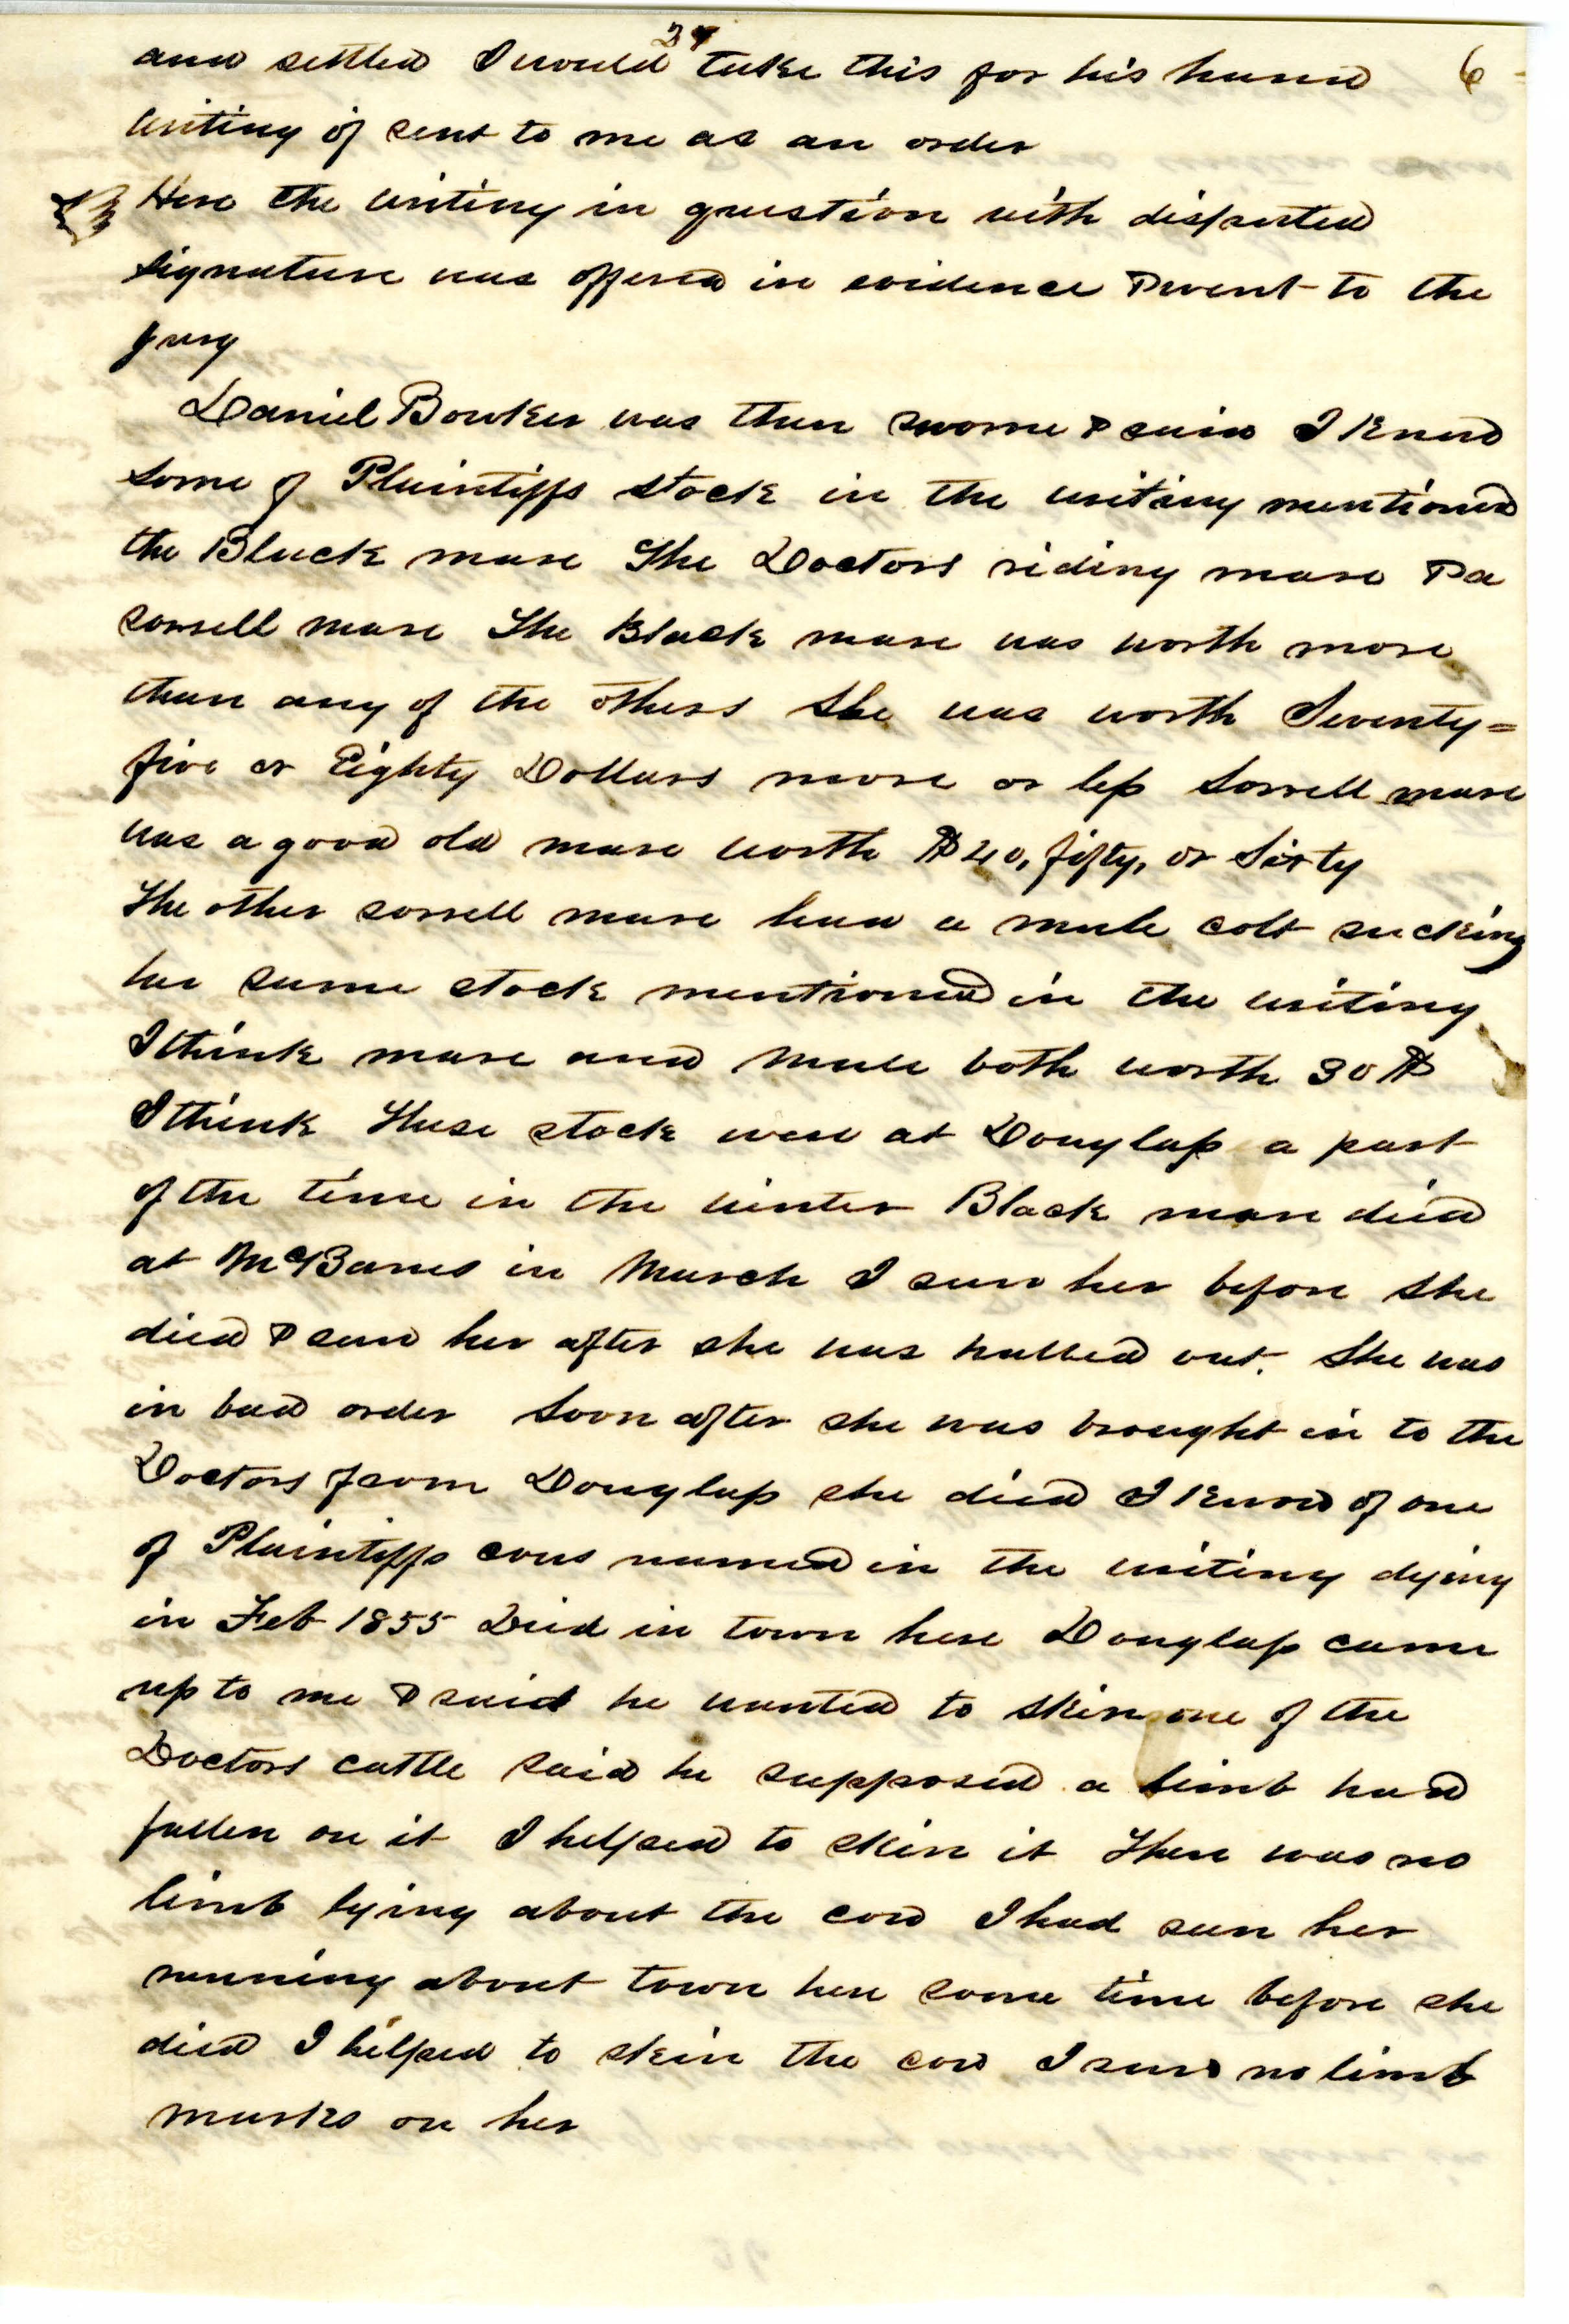 24
and settled I would take this for his hand 6
writing if sent to me as an order
Here the writing in question with disputed
signature was offered in evidence & went to the
jury
Daniel Bowker was then sworne & said I knew
some of Plaintiffs stock in the writing mentioned
the Black mare The Doctors riding mare & a
sorrell mare The Black mare was worth more
than any of the others She was worth Seventy=
five or Eighty Dollars more or less Sorrell mare
was a good old mare worth $40, fifty, or Sixty
The other sorrell mare had a mule colt sucking
her same stock mentioned in the writing
I think mare and mule both worth 30 $
I think these stock were at Douglass a part
of the time in the winter Black mare died
at McBanes in March I saw her before she
died & saw her after she was hailed out. She was
in bad order Soon after she was brought in to the
Doctors from Douglass she died I know of one
of Plaintiffs cows named in the writing dying
in Feb 1855 Died in town here Douglass came
up to me & said he wanted to skin one of the
Doctors cattle said he supposed a limb had
fallen on it I helped to skin it There was no
limb lying about the cow I had seen her
running about town here some time before she
died I helped to skin the cow I saw no limb
marks on her